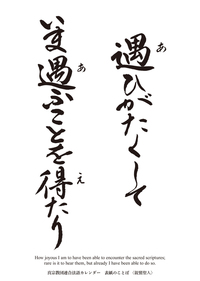 遇ひがたくして
あ
いま遇ふことを得たり
あ
え
How joyous I am to have been able to encounter the sacred scriptures;
rare is it to hear them, but already I have been able to do so.
真宗教団連合法語カレンダー　表紙のことば　（親鸞聖人）